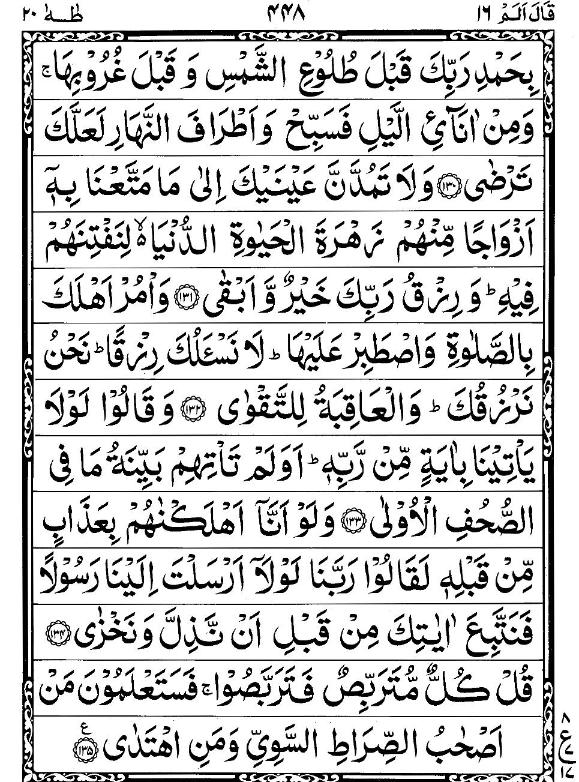 قَالَ اَلَمْ ١٦ ٤٤٨ طٰهٰ ٢٠
بِحَمْدِ رَبِّكَ قَبْلَ طُلُوْعِ الشَّمْسِ وَ قَبْلَ غُرُوْبِهَا ۚ
وَمِنْ اٰنَآئِ الَّيْلِ فَسَبِّحْ وَاَطْرَافَ النَّهَارِ لَعَلَّكَ
تَرْضٰى ﴿١٣٠﴾ وَلَا تَمُدَّنَّ عَيْنَيْكَ اِلٰى مَا مَتَّعْنَا بِهٖۤ
اَزْوَاجًا مِّنْهُمْ زَهْرَةَ الْحَيٰوةِ الدُّنْيَا ۙ لِنَفْتِنَهُمْ
فِيْهِ ؕ وَ رِزْقُ رَبِّكَ خَيْرٌ وَّ اَبْقٰى ﴿١٣١﴾ وَاْمُرْ اَهْلَكَ
بِالصَّلٰوةِ وَاصْطَبِرْ عَلَيْهَا ؕ لَا نَسْـَٔلُكَ رِزْقًا ؕ نَحْنُ
نَرْزُقُكَ ؕ وَالْعَاقِبَةُ لِلتَّقْوٰى ﴿١٣٢﴾ وَ قَالُوْا لَوْلَا
يَاْتِيْنَا بِاٰيَةٍ مِّنْ رَّبِّهٖ ؕ اَوَلَمْ تَاْتِهِمْ بَيِّنَةُ مَا فِى
الصُّحُفِ الْاُوْلٰى ﴿١٣٣﴾ وَلَوْ اَنَّاۤ اَهْلَكْنٰهُمْ بِعَذَابٍ
مِّنْ قَبْلِهٖ لَقَالُوْا رَبَّنَا لَوْلَاۤ اَرْسَلْتَ اِلَيْنَا رَسُوْلًا
فَنَتَّبِعَ اٰيٰتِكَ مِنْ قَبْلِ اَنْ نَّذِلَّ وَ نَخْزٰى ﴿١٣٤﴾
قُلْ كُلٌّ مُّتَرَبِّصٌ فَتَرَبَّصُوْا ۚ فَسَتَعْلَمُوْنَ مَنْ
اَصْحٰبُ الصِّرَاطِ السَّوِىِّ وَمَنِ اهْتَدٰى ﴿١٣٥﴾ ع
٨
ع